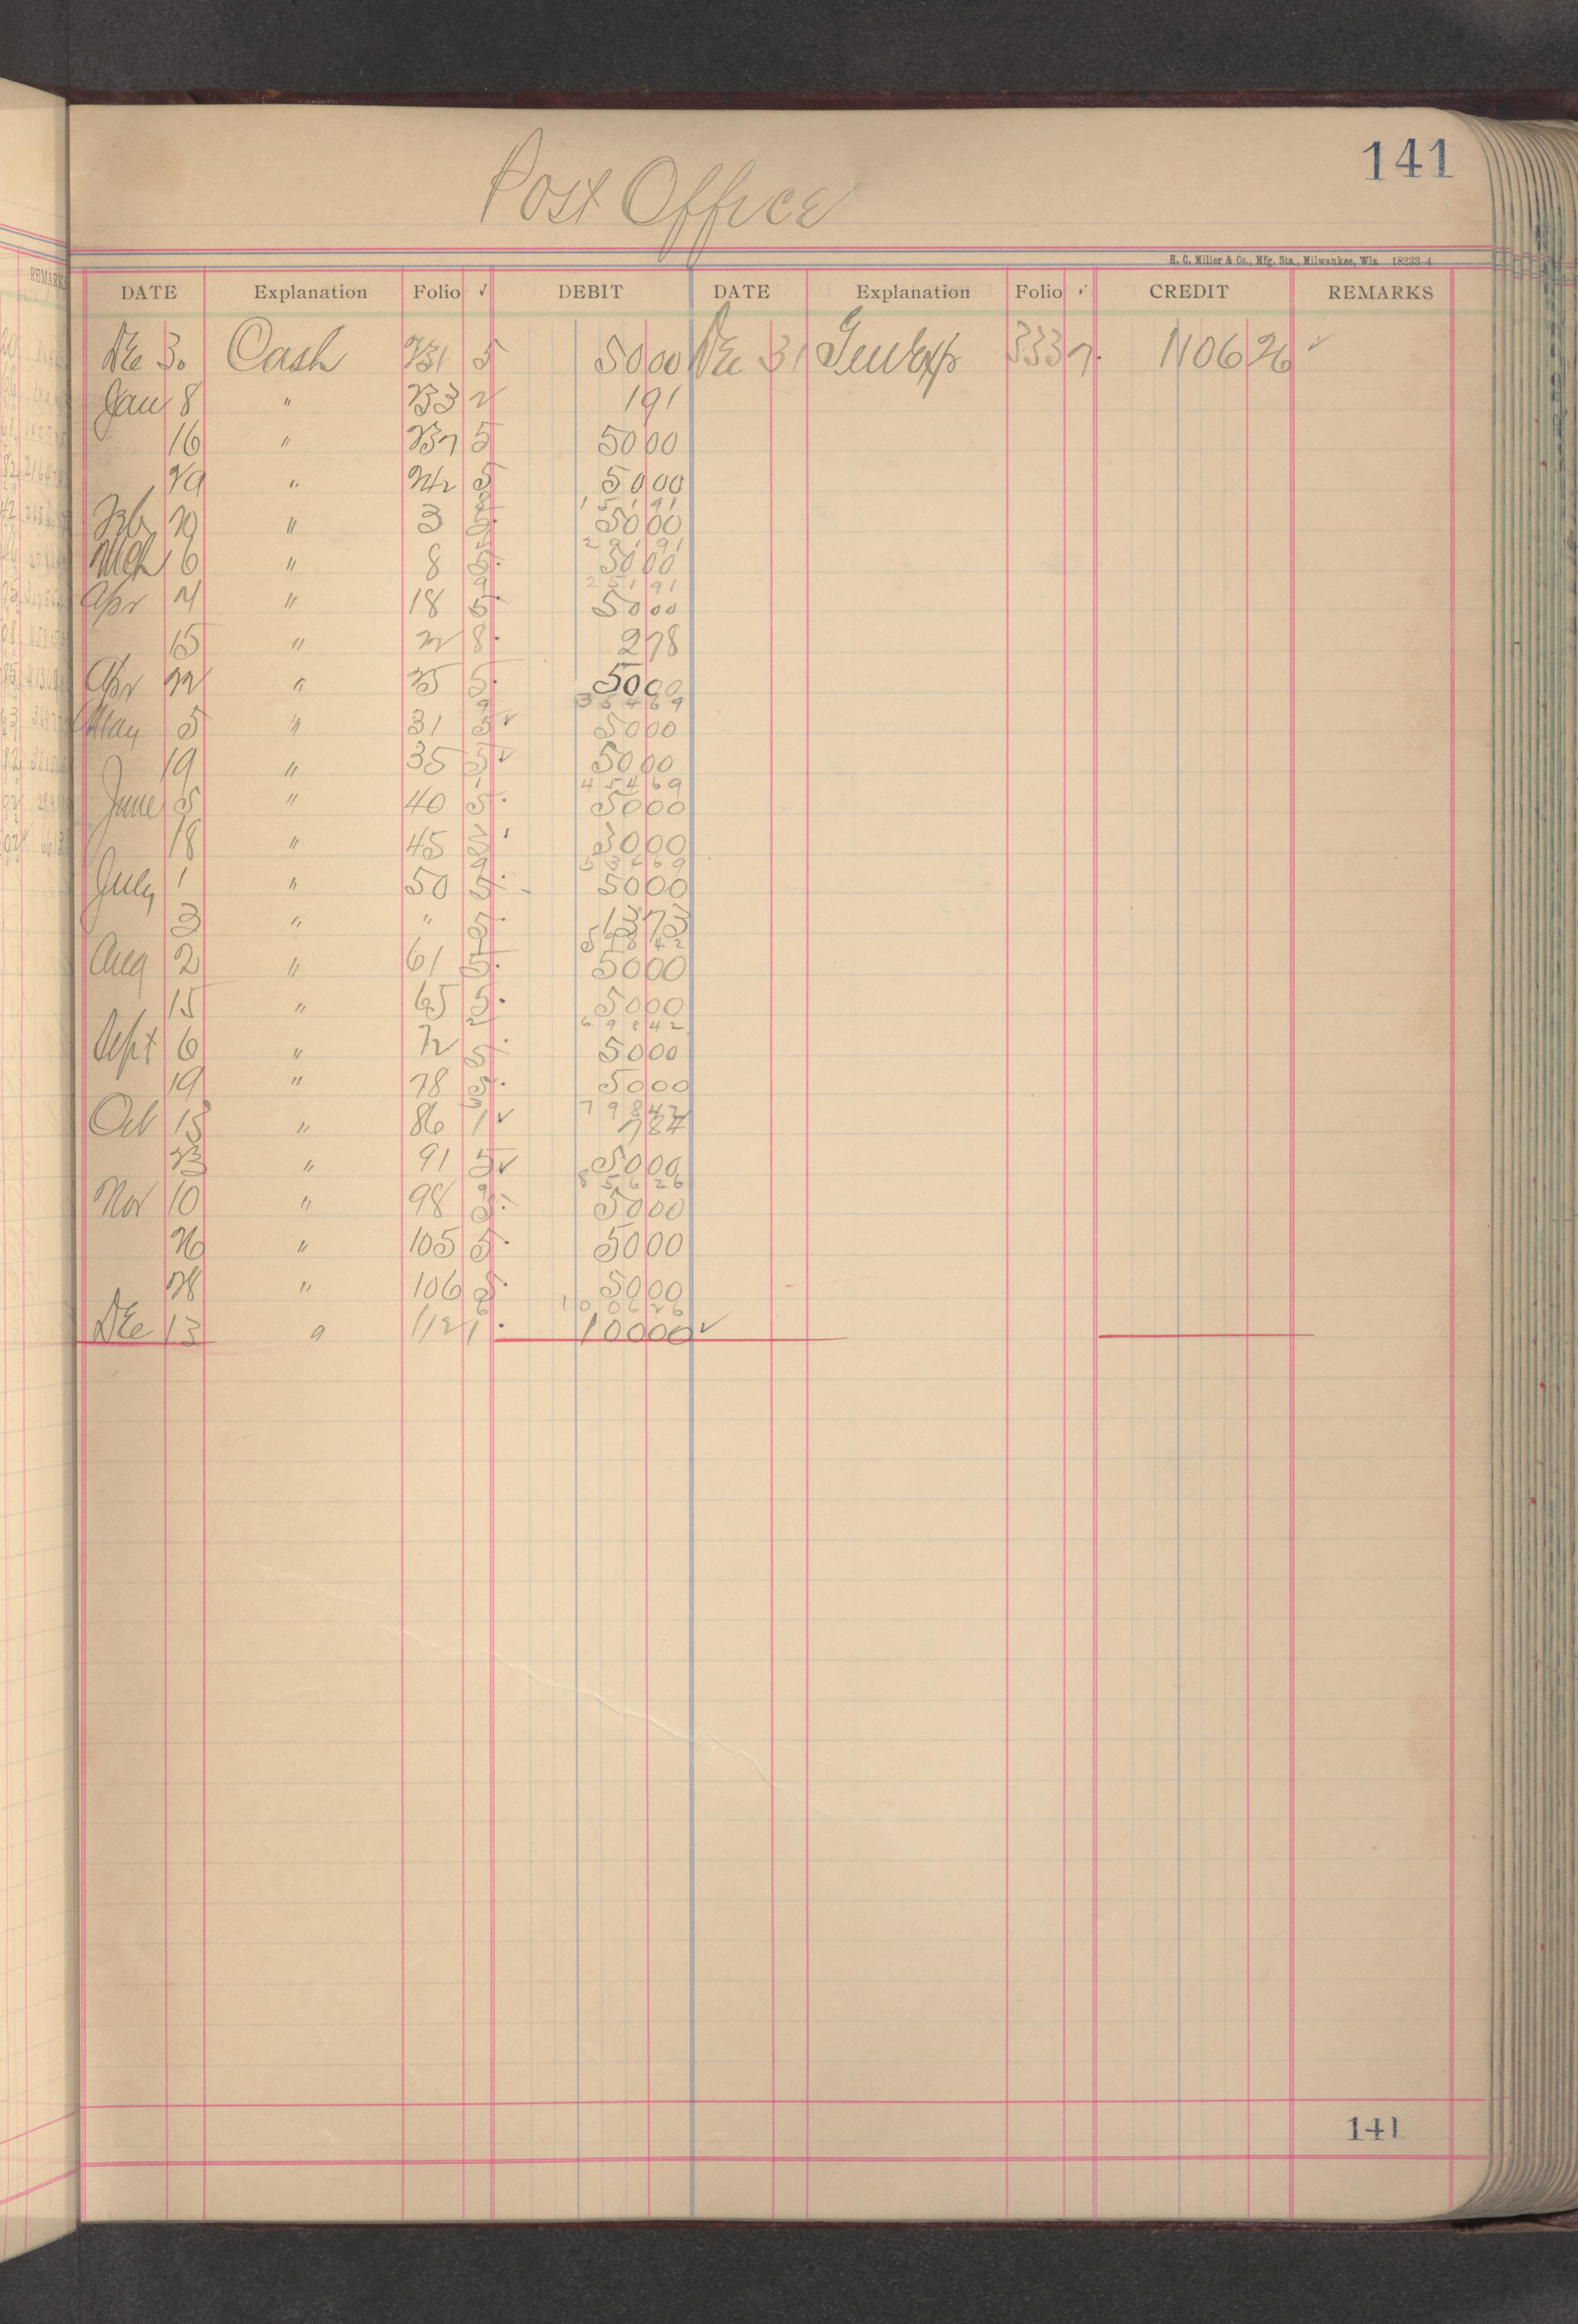 141
Post Office
H. C. Miller & Co., Mfg. Sta., Milwaukee, Wis. 18233-4
DATE Explanation Folio ✓ DEBIT DATE Explanation Folio ✓ CREDIT REMARKS
Dec 30 Cash 231 5 5000 Dec 31 Gen Exp 333 7 110626 ✓
Jan 8 " 233 2 191
16 " 237 5 5000
29 " 242 5 5000
15191
Feb 20 " 3 5 5000
20191
Mch 6 " 8 5 5000
25191
Apr 4 " 18 5 5000
15 " 22 8 278
Apr 22 " 25 5 5000
35469
May 5 " 31 5 ✓ 5000
19 " 35 5 ✓ 5000
45469
June 5 " 40 5 5000
18 " 45 3 3000
53469
July 1 " 50 5 5000
3 " " 5 1373
59842
Aug 2 " 61 5 5000
15 " 65 5 5000
69842
Sept 6 " 72 5 5000
19 " 78 5 5000
79842
Oct 13 " 86 1 ✓ 784
23 " 91 5 ✓ 5000
85626
Nov 10 " 98 5 5000
26 " 105 5 5000
28 " 106 5 5000
100626
Dec 13 " 112 1 10000 ✓
141